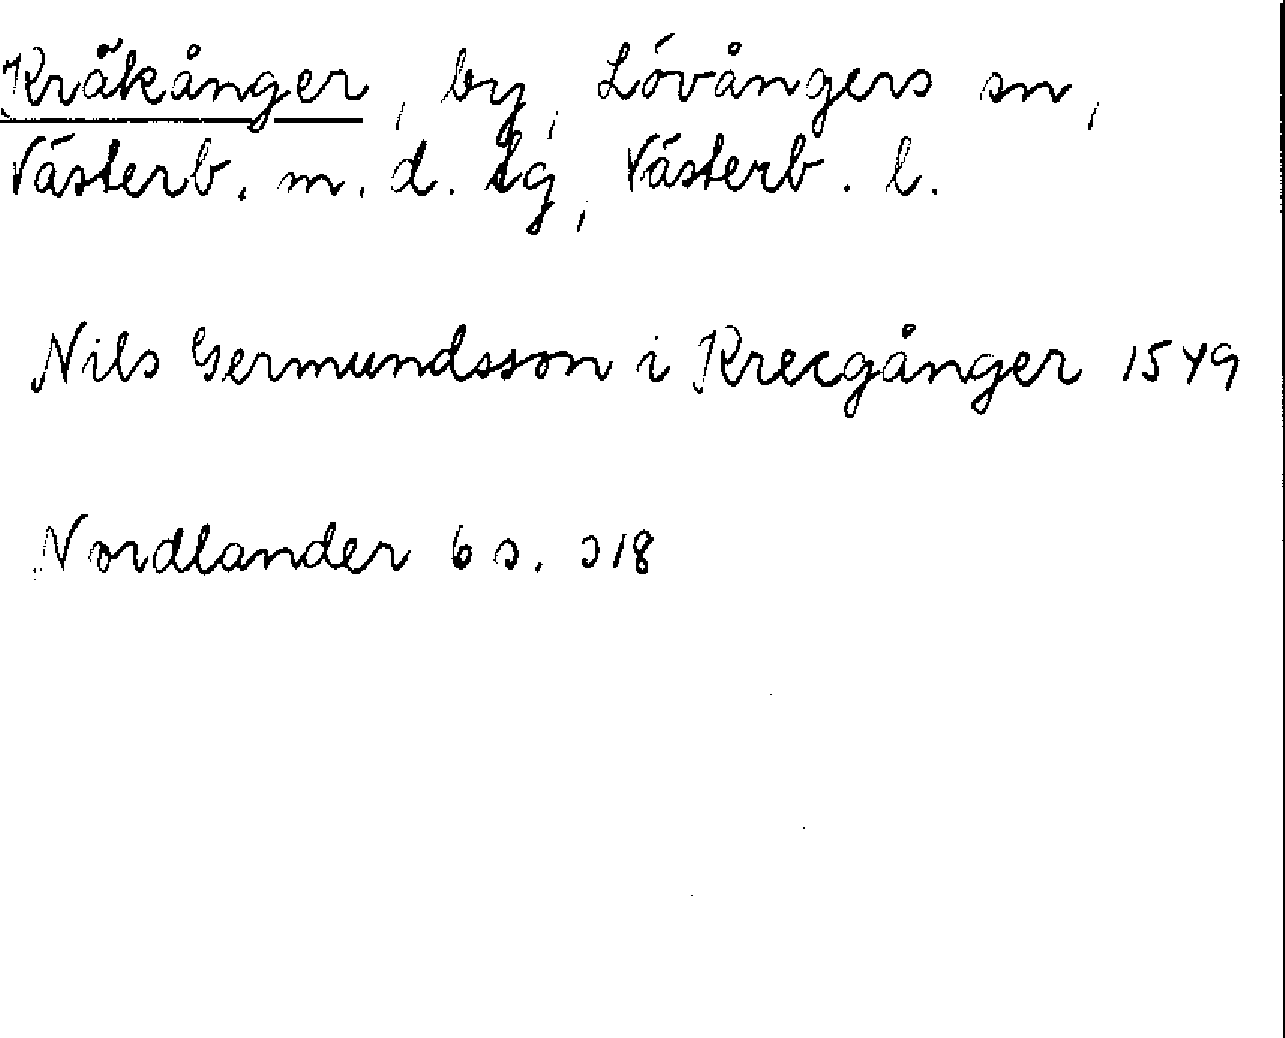 Kråkånger, by, Lövångers sn,
Västerb. m. d. tg, Västerb. l.
Nils Germundsson i Krecgånger 1549
Nordlander 6 s. 318